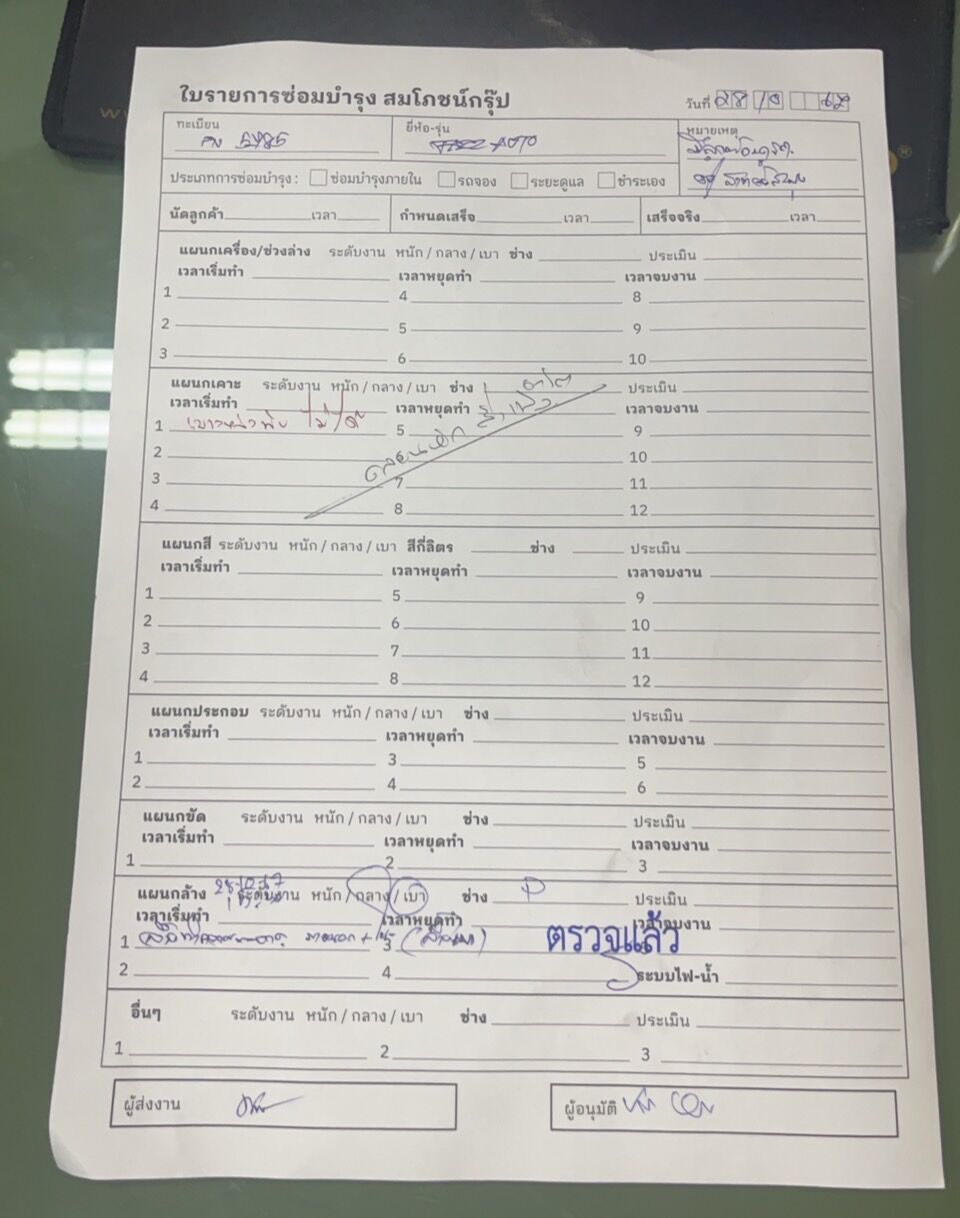 ใบรายการซ่อมบำรุง สมโภชน์กรุ๊ป
วันที่ 28/10 67
ทะเบียน 5485
ยี่ห้อ-รุ่น AUTO
หมายเหตุ
ประเภทการซ่อมบำรุง : ซ่อมบำรุงภายใน รถจอง ระยะดูแล ชำระเอง
นัดลูกค้า เวลา กำหนดเสร็จ เวลา เสร็จจริง เวลา
แผนกเครื่อง/ช่วงล่าง ระดับงาน หนัก / กลาง / เบา ช่าง ประเมิน
เวลาเริ่มทำ เวลาหยุดทำ เวลาจบงาน
1 4 8
2 5 9
3 6 10
แผนกเคาะ ระดับงาน หนัก / กลาง / เบา ช่าง ประเมิน
เวลาเริ่มทำ เวลาหยุดทำ เวลาจบงาน
1 5 9
2 10
3 7 11
4 8 12
แผนกสี ระดับงาน หนัก / กลาง / เบา สีกี่ลิตร ช่าง ประเมิน
เวลาเริ่มทำ เวลาหยุดทำ เวลาจบงาน
1 5 9
2 6 10
3 7 11
4 8 12
แผนกประกอบ ระดับงาน หนัก / กลาง / เบา ช่าง ประเมิน
เวลาเริ่มทำ เวลาหยุดทำ เวลาจบงาน
1 3 5
2 4 6
แผนกขัด ระดับงาน หนัก / กลาง / เบา ช่าง ประเมิน
เวลาเริ่มทำ เวลาหยุดทำ เวลาจบงาน
1 2 3
แผนกล้าง ระดับงาน หนัก / กลาง / เบา ช่าง P ประเมิน
เวลาเริ่มทำ เวลาหยุดทำ เวลาจบงาน
1 3 ตรวจแล้ว
2 4 ระบบไฟ-น้ำ
อื่นๆ ระดับงาน หนัก / กลาง / เบา ช่าง ประเมิน
1 2 3
ผู้ส่งงาน
ผู้อนุมัติ